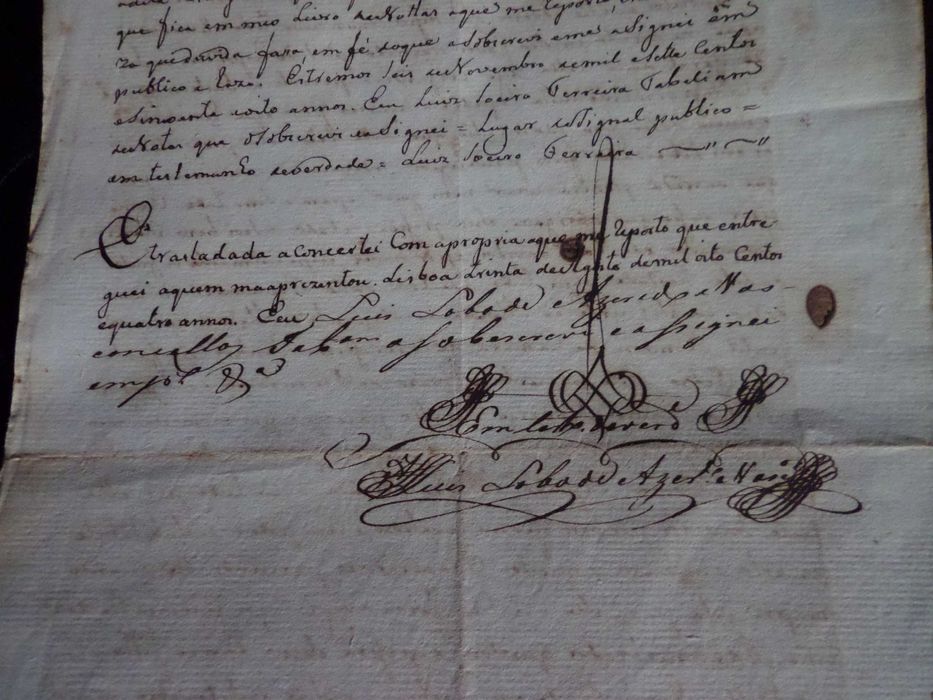 que fica em meu Livro de Nottas aque me Reporto
za que duvida fasa em fé do que a sobscrevi e me asignei em
publico e Razo. Estremos seis de Novembro de mil e sette Centos
e sincoenta e oito annos. Eu Luiz Soeiro Ferreira Tabeliam
de Notas que o sobscrevi e asignei = Lugar do Signal publico =
em testemunho de verdade = Luiz Soeiro Ferreira
E trasladada a concertei Com a propria aque me Reporto que entre
guei aquem ma aprezentou. Lisboa trinta de Agosto de mil oito Centos
e quatro annos. E eu Luis Lobo de Azeredo e Vas-
concellos Tabam a sobescrevi e assignei
em pco & a
Em testo de verde
Luis Lobo de Azerdo e Vasclos